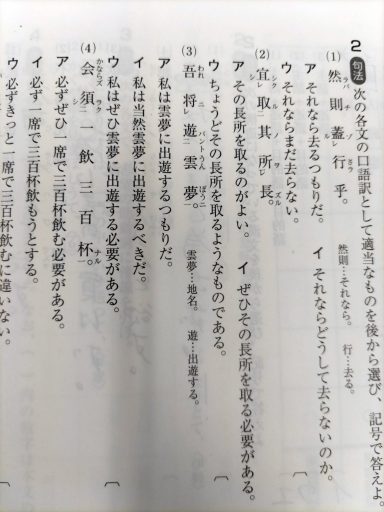 2 句法 次の各文の口語訳として適当なものを後から選び、記号で答えよ。
(1) 然ラバ則チ蓋ルゾ行ラ乎。 然則…それなら。 行…去る。
ア それなら去るつもりだ。 イ それならどうして去らないのか。
ウ それならまだ去らない。
(2) 宜シク取ル其ノ所ヲ長ズル。
ア その長所を取るのがよい。 イ ぜひその長所を取る必要がある。
ウ ちょうどその長所を取るようなものである。
(3) 吾われ将ニ遊バント雲うん夢ぼうニ。 雲夢…地名。 遊…出遊する。
ア 私は雲夢に出遊するつもりだ。
イ 私は当然雲夢に出遊するべきだ。
ウ 私はぜひ雲夢に出遊する必要がある。
(4) 会かならズ須ラク一飲三百杯ナル。
ア 必ずぜひ一席で三百杯飲む必要がある。
イ 必ず一席で三百杯飲もうとする。
ウ 必ずきっと一席で三百杯飲むに違いない。